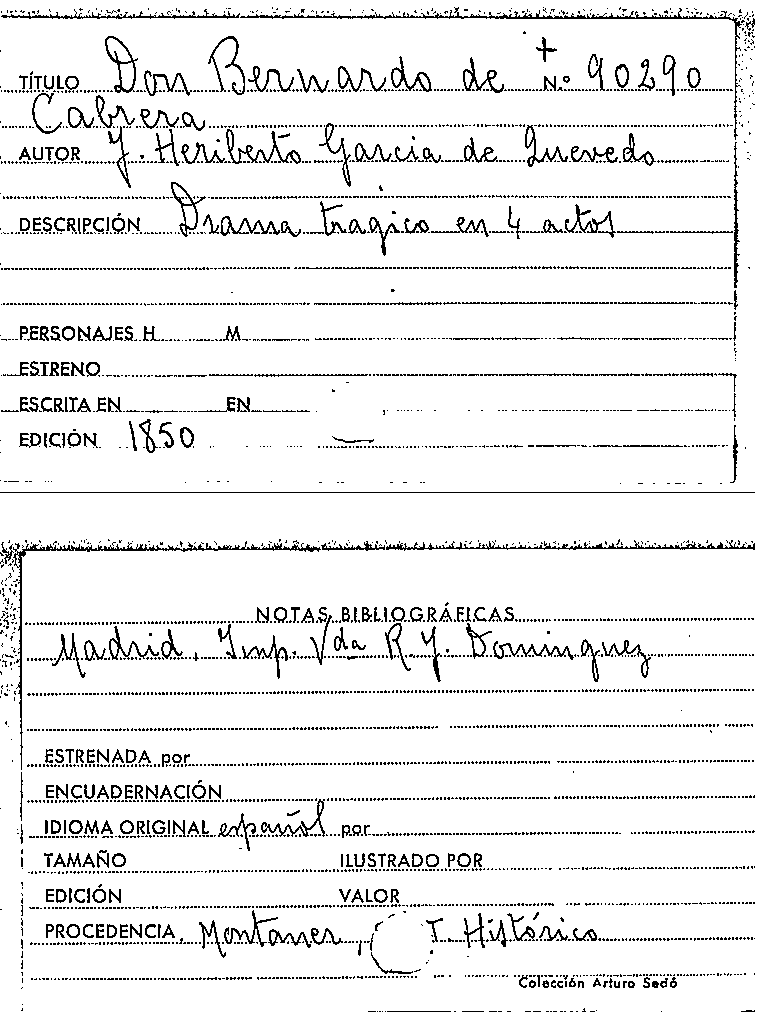 TÍTULO Don Bernardo de + N.º 90290
Cabrera
AUTOR J. Heriberto Garcia de Quevedo
DESCRIPCIÓN Drama tragico en 4 actos
PERSONAJES H M
ESTRENO
ESCRITA EN EN
EDICIÓN 1850
NOTAS BIBLIOGRÁFICAS
Madrid, Imp. Vda R. J. Dominguez
ESTRENADA por
ENCUADERNACIÓN
IDIOMA ORIGINAL español por
TAMAÑO ILUSTRADO POR
EDICIÓN VALOR
PROCEDENCIA Montaner, T. Histórico
Colección Arturo Sedó